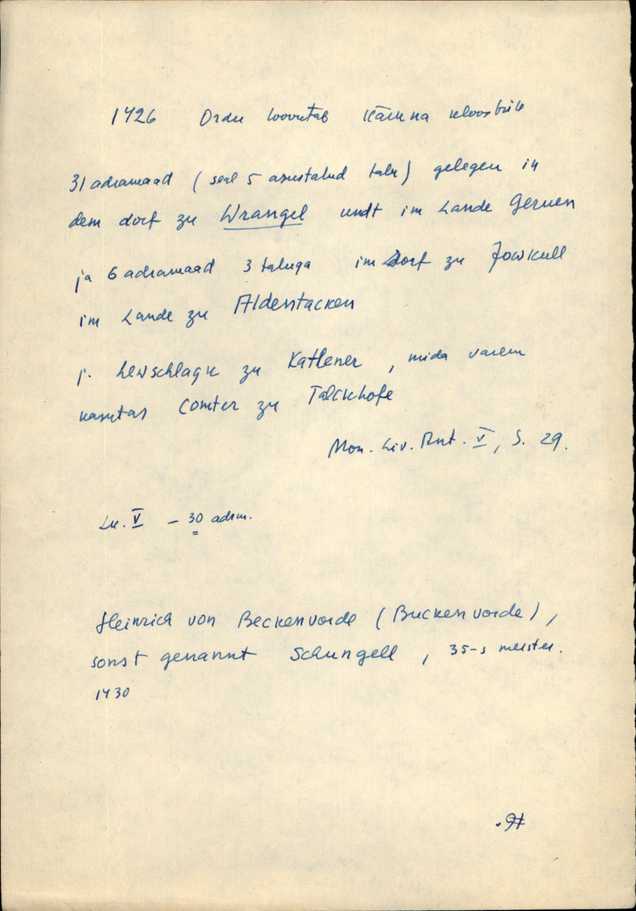 1426 Ordu loovutab Kärkna kloostrile
31 adramaad (seal 5 asustatud talu) gelegen in
dem dorf zu Wrangel undt im Lande Geruen
ja 6 adramaad 3 taluga im Dorf zu Jowkull
im Lande zu Aldentacken
j. hewschlagk zu Katlener, mida varem
kasutas Comter zu Talckhofe
Mon. Liv. Ant. V, S. 29.
Lk. V – 30 adrm.
Heinrich von Beckenvorde (Buckenvorde),
sonst genannt Schungell, 35-s meister.
1430